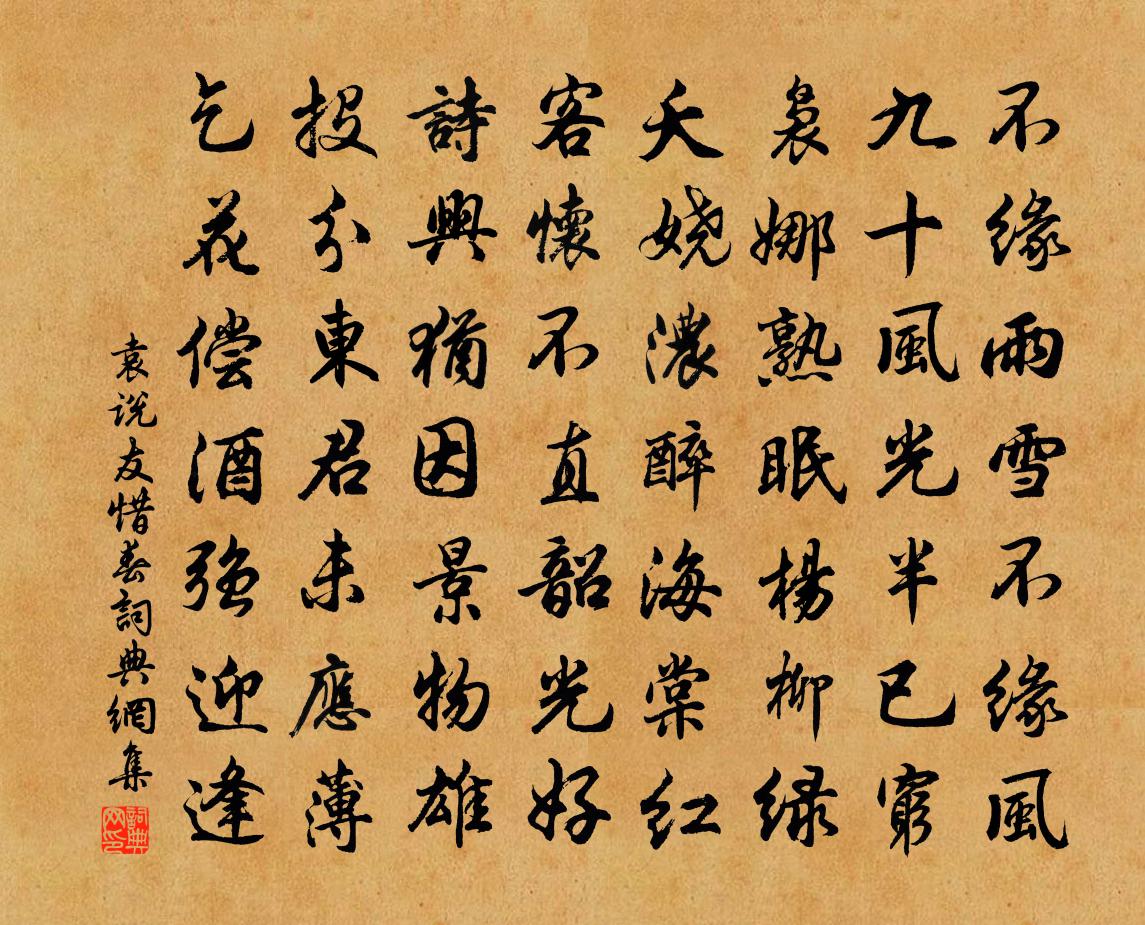 不缘雨雪不缘風
九十風光半已窮
袅娜熟眠楊柳绿
夭娆濃醉海棠红
客懷不直韶光好
詩興猶因景物雄
投分東君未應薄
乞花偿酒強迎逢
袁说友惜春詞典網集
詞典网印